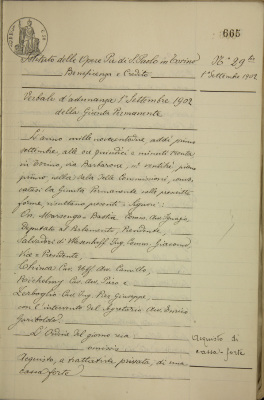 665
Istituto delle Opere Pie di S. Paolo in Torino
Beneficenza e Credito
N.° 29
1° Settembre 1902
Verbale d'adunanza 1° Settembre 1902
della Giunta Permanente
L'anno mille novecentodue, addì primo
settembre, alle ore quindici e minuti trenta
in Torino, via Barbaroux, n.° ventitré, piano
primo, nella Sala delle Commissioni, convo-
catasi la Giunta Permanente nelle prescritte
forme, risultano presenti i Signori:
On. Marsengo Bastia Comm. Avv. Ignazio,
Deputato al Parlamento, Presidente,
Salvadori di Wiesenhoff Ing. Comm. Giacomo,
Vice Presidente,
Chinea Cav. Uff. Avv. Camillo,
Cav. Avv.
Cav. Ing. Pier Giuseppe,
con l'intervento del Segretario Avv. Enrico
L'Ordine del giorno reca:
omissis
Acquisto, a trattativa privata, di una
cassa forte.
Acquisto di
cassa-forte